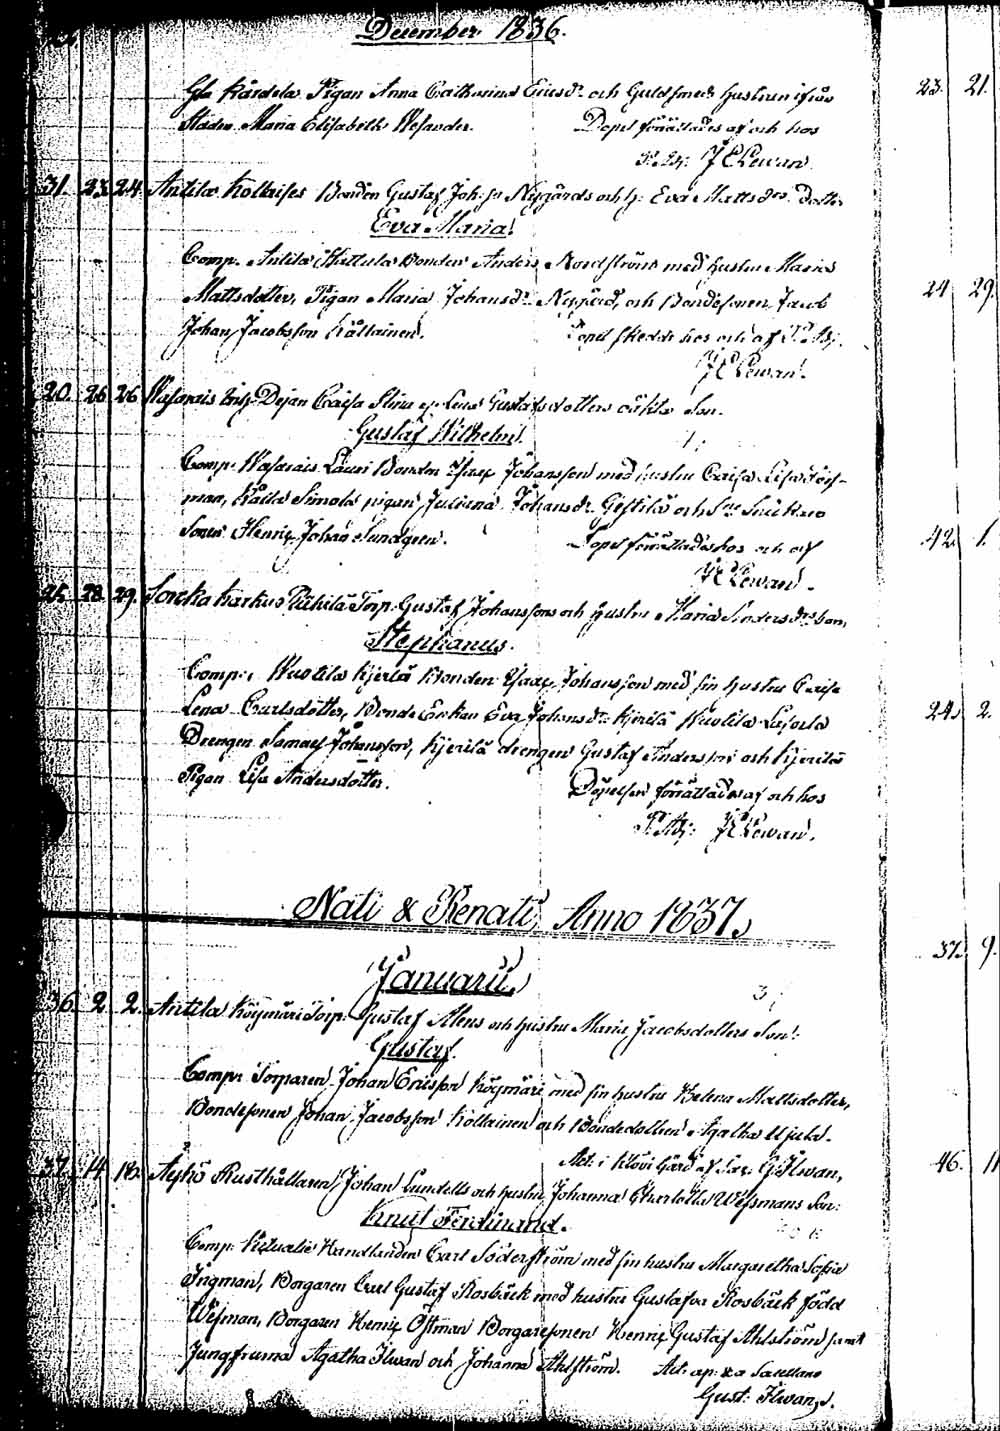 December 1836.
Kårdela Pigan Anna Catharina Ericsd:r och Guldsmeds hustrun ifrån
Staden Maria Elisabeth Wefander. Dopet förrättades af och hos
P. Adj: J E Lewan
31. 23. 24. Antila Bonden Gustaf Joh: sn Nygårds och h: Eva Mattsd:rs Dotter
Eva Maria.
Comp. Antila Mattula Bonden Anders Nordström med hustru Maria
Mattsdotter, Pigan Maria Johansd:r Nygård, och Bondesonen Jacob
Johan Jacobsson Kållainen. Dopet skedde hos och af P. Adj.
J E Lewan.
20. 26 26 Caisa Stina Gustafsdotters oäkta Son.
Gustaf Wilhelm.
Comp: Wasarais Lauri Bonden Isac Johansson med hustru Caisa Lisa
man, Simola pigan Juliena Johansd:r och
Sonen Henric Johan Sundgren. Dopet förrättades hos och af
J E Lewan.
25. 28. 29. Sorcka Harkus Torp. Gustaf Johanssons och hustru Maria Andersd:rs son,
Stephanus.
Comp: Wuotila Kjerilä Bonden Isac Johansson med sin hustru Caisa
Lena Carlsdotter, Bonde Enkan Eva Johansd:r Kjerilä Wuotila
Drengen Samuel Johansson, Kjerilä drengen Gustaf Andersson och Kjerilä
Pigan Lisa Andersdotter. Döpelsen förrättades af och hos
P. Adj: J E Lewan.
Nati & Renati, Anno 1837.
Januarii.
36. 2 2. Antila Köymäri Torp: Gustaf Alens och hustru Maria Jacobsdotters Son:
Gustaf.
Comp: Torparen Johan Ericsson Köymäri med sin hustru Helena Mattsdotter,
Bondesonen Johan Jacobsson Kollainen och Bondedottren Agatha Ujula.
Act: i Klövi Gård af Sac: G: Ilwan,
37. 14 18. Äyhö Rusthållaren Johan Lundells och hustru Johanna Charlotta Wefsmans Son:
Knut Ferdinand.
Comp: Handlanden Carl Söderström med sin hustru Margaretha Sofia
Ingman, Borgaren Carl Gustaf Rosbäck med hustru Gustafva Rosbäck född
Wefsman, Borgaren Henric Östman Borgaresonen Henric Gustaf Ahlström samt
Jungfrurna Agatha Ilwan och Johanna Ahlström. Act: ap: & a Sacellano
Gust: Ilwan.
23. 21.
24 29.
42. 1.
24. 2.
37. 9.
46. 11